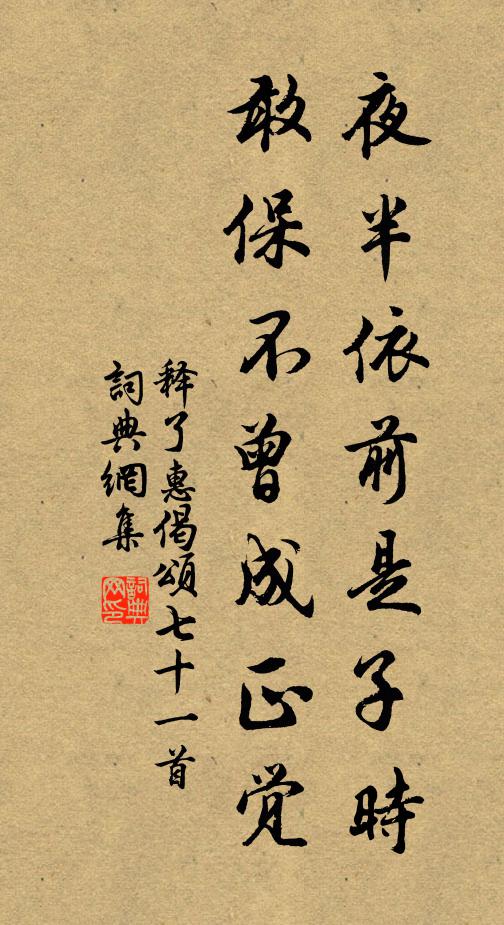 夜半依前是子時
敢保不曾成正覚
释了惠偈頌七十一首
詞典網集
詞典網印